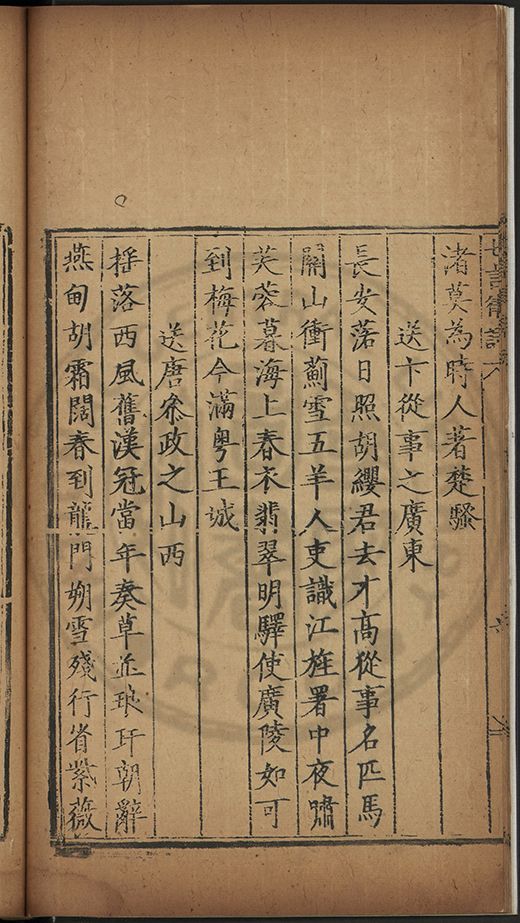 渚莫為時人著楚騷
送卞從事之廣東
長安落日照胡纓君去才高從事名匹馬
關山衝薊雪五羊人吏識江旌署中夜嘯
芙蓉暮海上春衣翡翠明驛使廣陵如可
到梅花今滿粤王城
送唐叅政之山西
揺落西風舊漢冠當年奏草並琅玕朝辭
燕甸胡霜闊春到龍門朔雪殘行省紫薇